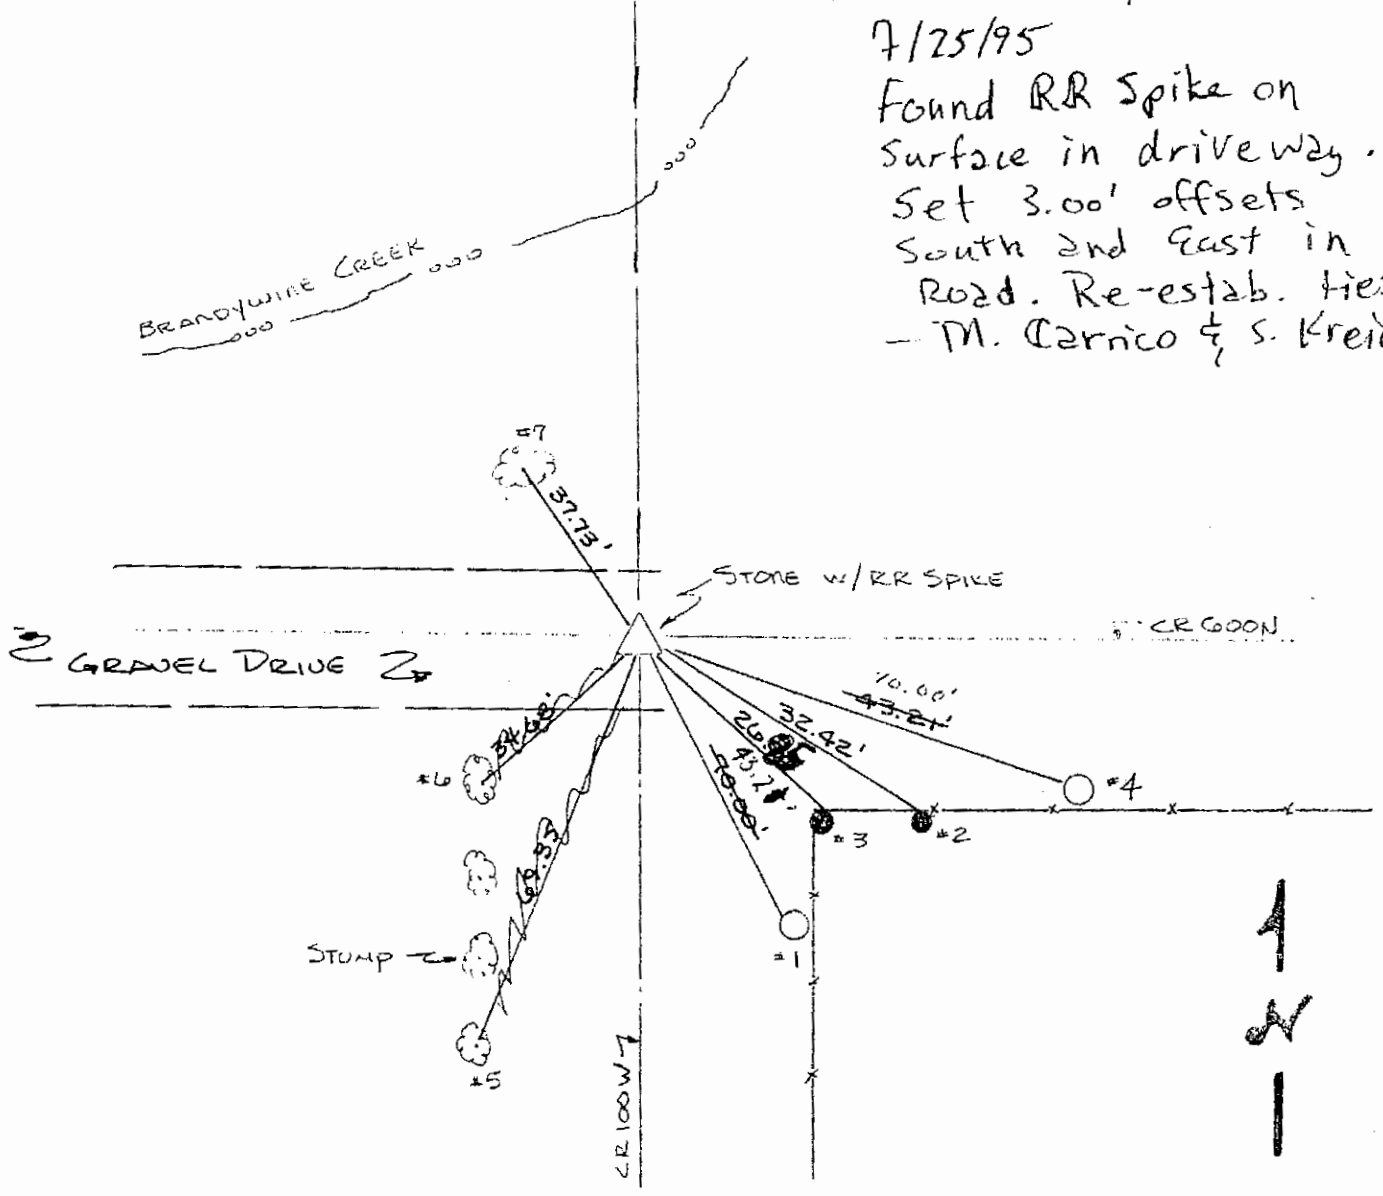 7/25/95
Found RR Spike on
surface in driveway.
Set 3.00' offsets
South and East in
Road. Re-estab. ties
— M. Carrico & S.
BRANDYWINE CREEK
#7
37.73'
STONE W/RR SPIKE
CR600N
GRAVEL DRIVE
70.00'
43.21'
32.42'
26.
43.21'
70.00'
34.68'
69.33'
#6
#4
#3
#2
#1
STUMP
#5
CR100W
N